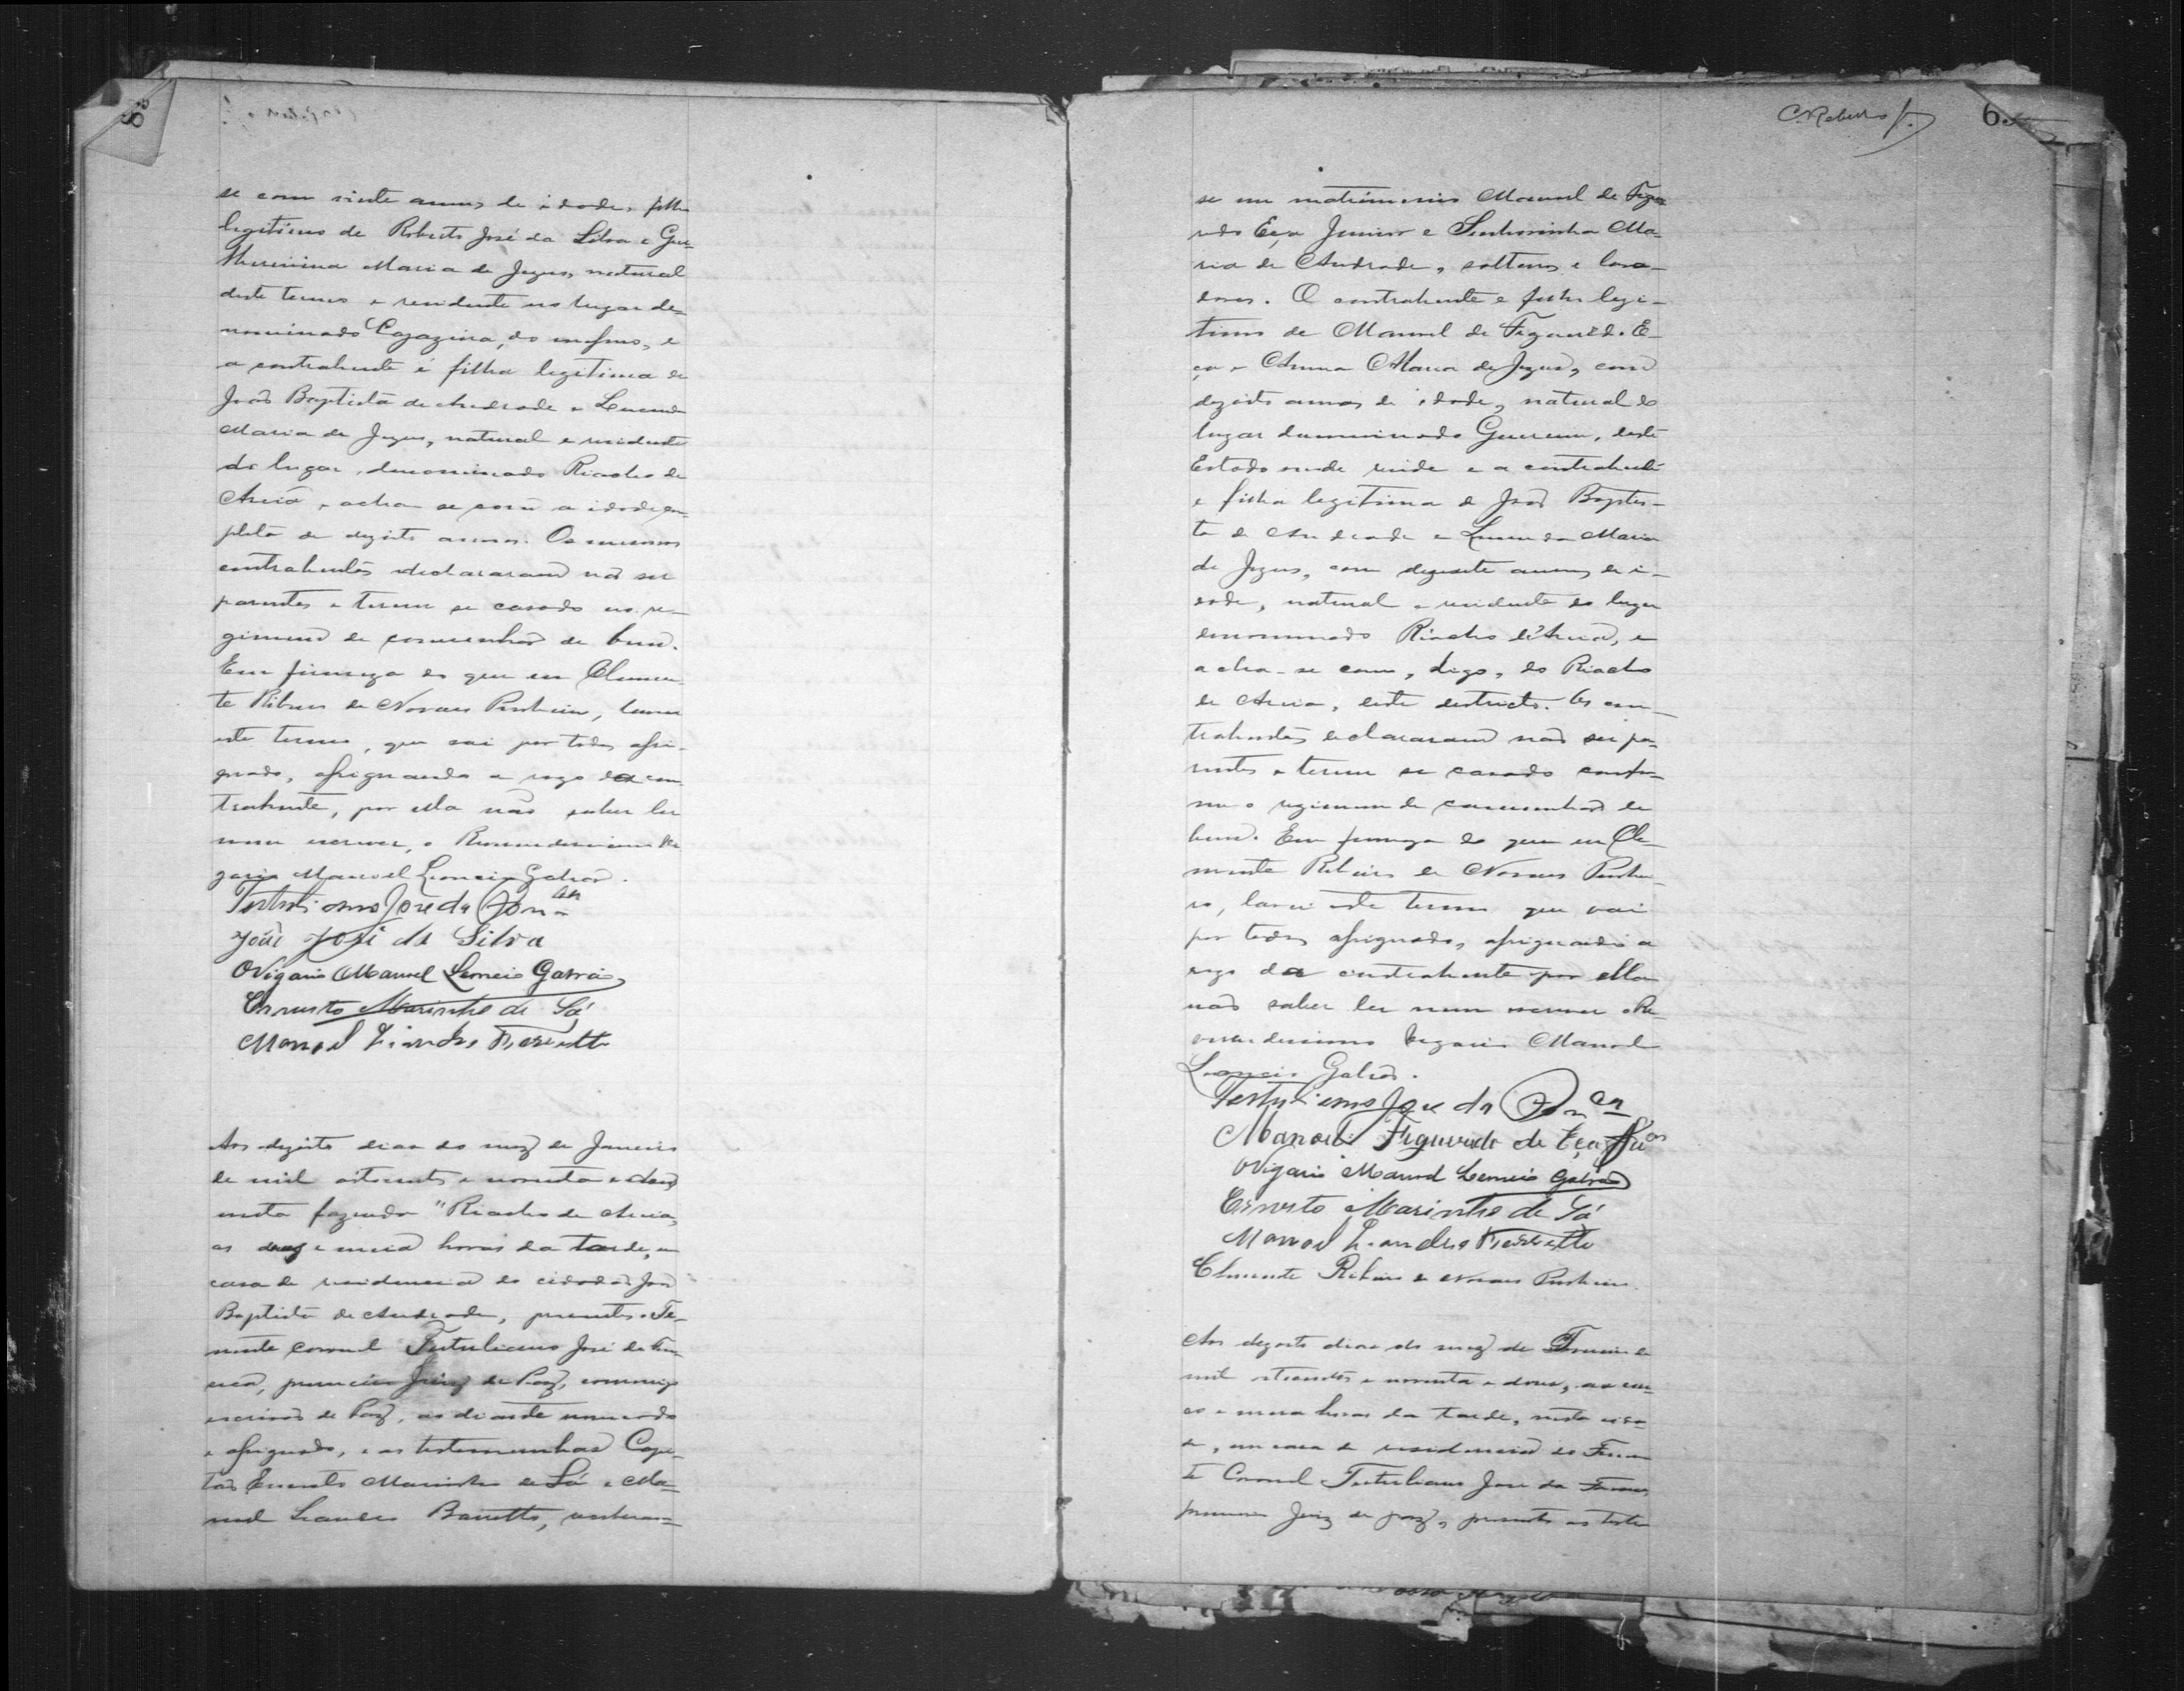 se com vinte annos de idade, filho
legitimo de Roberto José da Silva e Gui-
lhermina Maria de Jezus, natural
deste termo e residente no lugar de-
nominado Cajazeira, do mesmo, e
a contrahente é filha legitima de
João Baptista de Andrade e Lucinda
Maria de Jezus, natural e residente
do lugar denominado Riacho de
Areia, e acha se com a idade com-
pleta de dezoito annos. Os mesmos
contrahentes declararam não ser
parentes e terem se casado no re-
gimem de comunhão de bens.
Em firmeza do que eu Clemen-
te Ribeiro de Novaes Pinheiro, lavrei
este termo, que vai por todos assi-
gnado, assignando a rogo da con-
trahente, por ella não saber ler
nem escrever, o Reverendissimo Vi-
gario Manoel Leoncio Galvão.
Tertuliano José da Fonca
João José da Silva
O Vigario Manoel Leoncio Galvão
Ernesto Marinho de Sá
Manoel Liandro Barretto
Aos dezoito dias do mez de Janeiro
de mil oitocentos e noventa e dous
nesta fazenda "Riacho de Areia,
as duas e meia horas da tarde, em
casa de residencia do cidadão João
Baptista de Andrade, presentes o Te-
nente Coronel Tertuliano José da Fon-
seca, primeiro Juiz de Paz, commigo
escrivão de Paz, ao diante nomeado
e assignado, e as testemunhas Capi-
tão Ernesto Marinho de Sá e Ma-
noel Leandro Barretto, receberam-
C. Rebello f.
6
se em matrimonio Manoel de Figue
redo Eça Junior e Senhorinha Ma-
ria de Andrade, solteiros e lavra-
dores. O contrahente e filho legi-
timo de Manoel de Figueredo E-
ça e Anna Maria de Jezus, com
dezoito annos de idade, natural do
lugar denominado Guerem, deste
Estado onde reside e a contrahente
e filha legitima de João Baptis-
ta de Andrade e Lucinda Maria
de Jezus, com dezesete annos de i-
dade, natural e residente do lugar
denominado Riacho d'Areia, e
acha-se com, digo, do Riacho
de Areia, deste destricto. Os con-
trahentes declararam não ser pa-
rentes e terem se casado confor-
me o regimem de comunhão de
bens. Em firmeza do que eu Cle-
mente Ribeiro de Novaes Pinhei-
ro, lavrei este termo que vai
por todos assignado, assignando a
rogo da contrahente por ella
não saber ler nem escrever o Re-
verendissimo Vigario Manoel
Leoncio Galvão.
Tertuliano Jose da Fonca
Manoel Figueredo de Eça Junor
O Vigario Manoel Leoncio Galvão
Ernesto Marinho de Sá
Manoel Liandro Barretto
Clemente Ribeiro de Novaes Pinheiro.
Aos dezoito dias do mez de Janeiro de
mil oitocentos e noventa e dous, as cin-
co e meia horas da tarde, nesta cida-
de, em casa de residencia do Tenen-
te Coronel Tertuliano Jose da Fonseca,
primeiro Juiz de paz, presente as teste